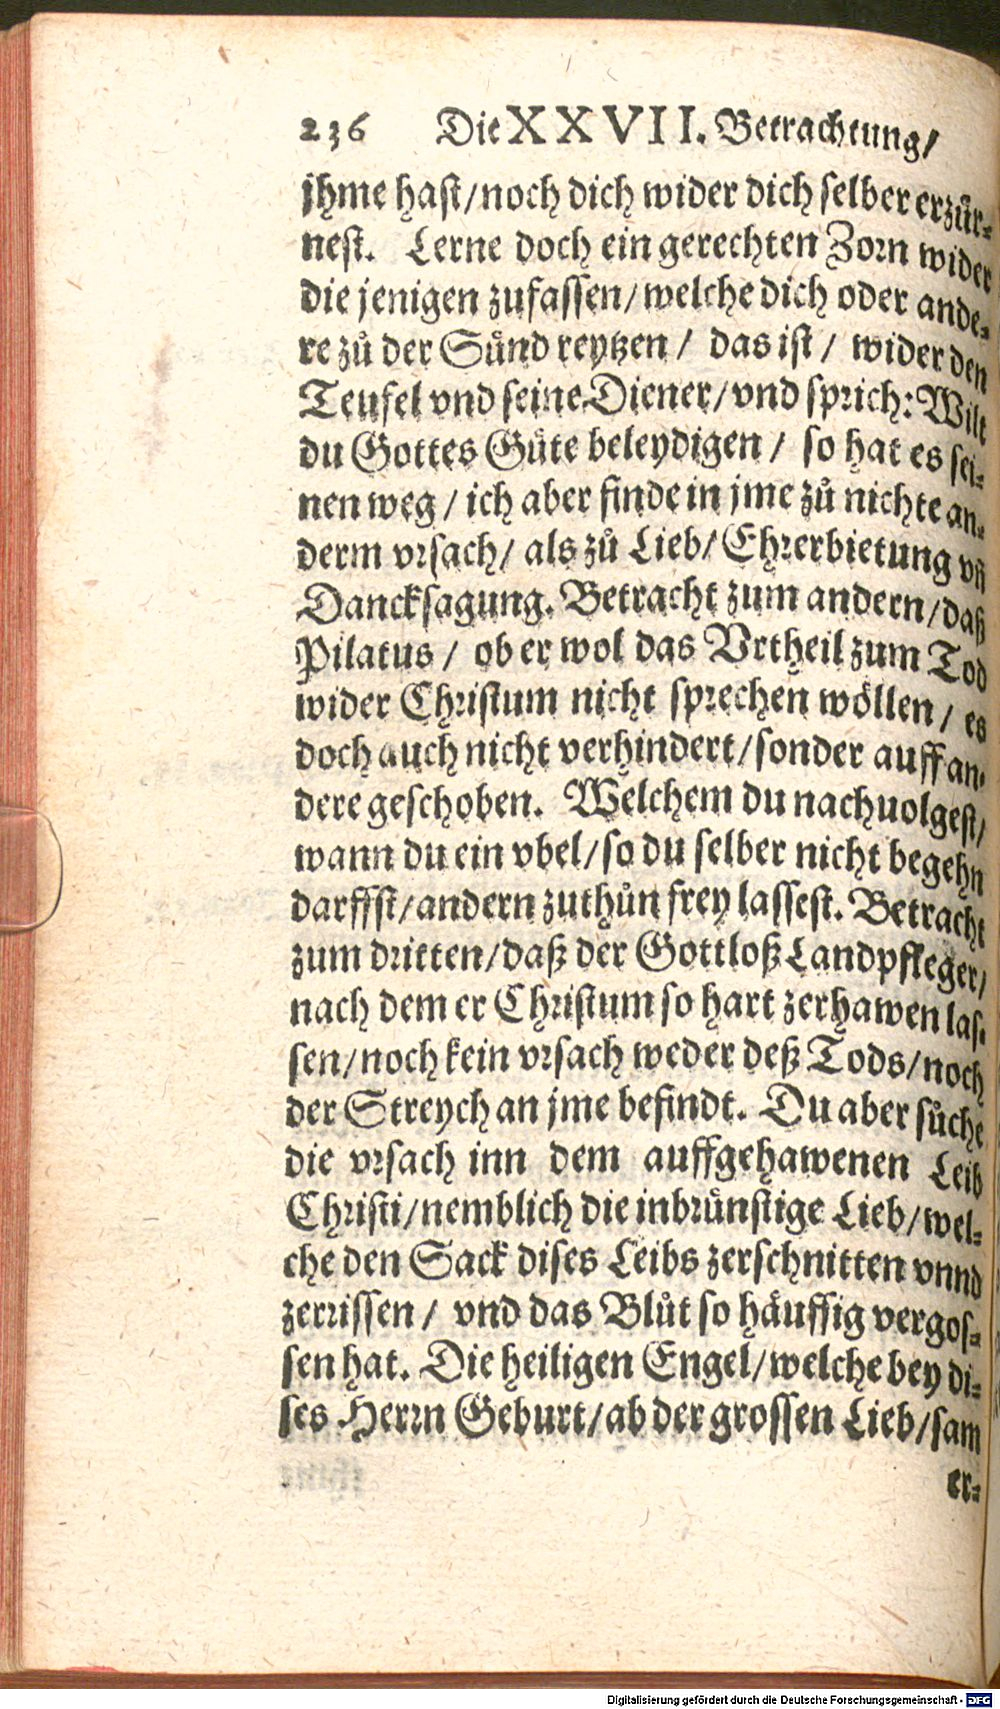 236 Die XXVII. Betrachtung/
jhme hast/noch dich wider dich selber erzuͤr-
nest. Lerne doch ein gerechten Zorn wider
die jenigen zufassen/welche dich oder ande-
re zuͦ der Suͤnd reytzen / das ist / wider den
Teufel vnd seine Diener/vnd sprich: Wilt
du Gottes Guͤte beleydigen / so hat es sei-
nen weg / ich aber finde in jme zuͦ nichte an-
derm vrsach/ als zuͦ Lieb/ Ehrerbietung vñ
Dancksagung. Betracht zum andern/daß
Pilatus / ob er wol das Vrtheil zum Tod
wider Christum nicht sprechen woͤllen / es
doch auch nicht verhindert/sonder auff an-
dere geschoben. Welchem du nachuolgest/
wann du ein vbel/so du selber nicht begehn
darffst/andern zuthuͦn frey lassest. Betracht
zum dritten/daß der Gottloß Landpfleger/
nach dem er Christum so hart zerhawen las-
sen/noch kein vrsach weder deß Tods/noch
der Streych an jme befindt. Du aber suͦche
die vrsach inn dem auffgehawenen Leib
Christi/nemblich die inbruͤnstige Lieb/wel-
che den Sack dises Leibs zerschnitten vnnd
zerrissen / vnd das Bluͦt so haͤuffig vergos-
sen hat. Die heiligen Engel/welche bey di-
ses Herrn Geburt/ab der grossen Lieb/sam
er-
Digitalisierung gefördert durch die Deutsche Forschungsgemeinschaft - DFG